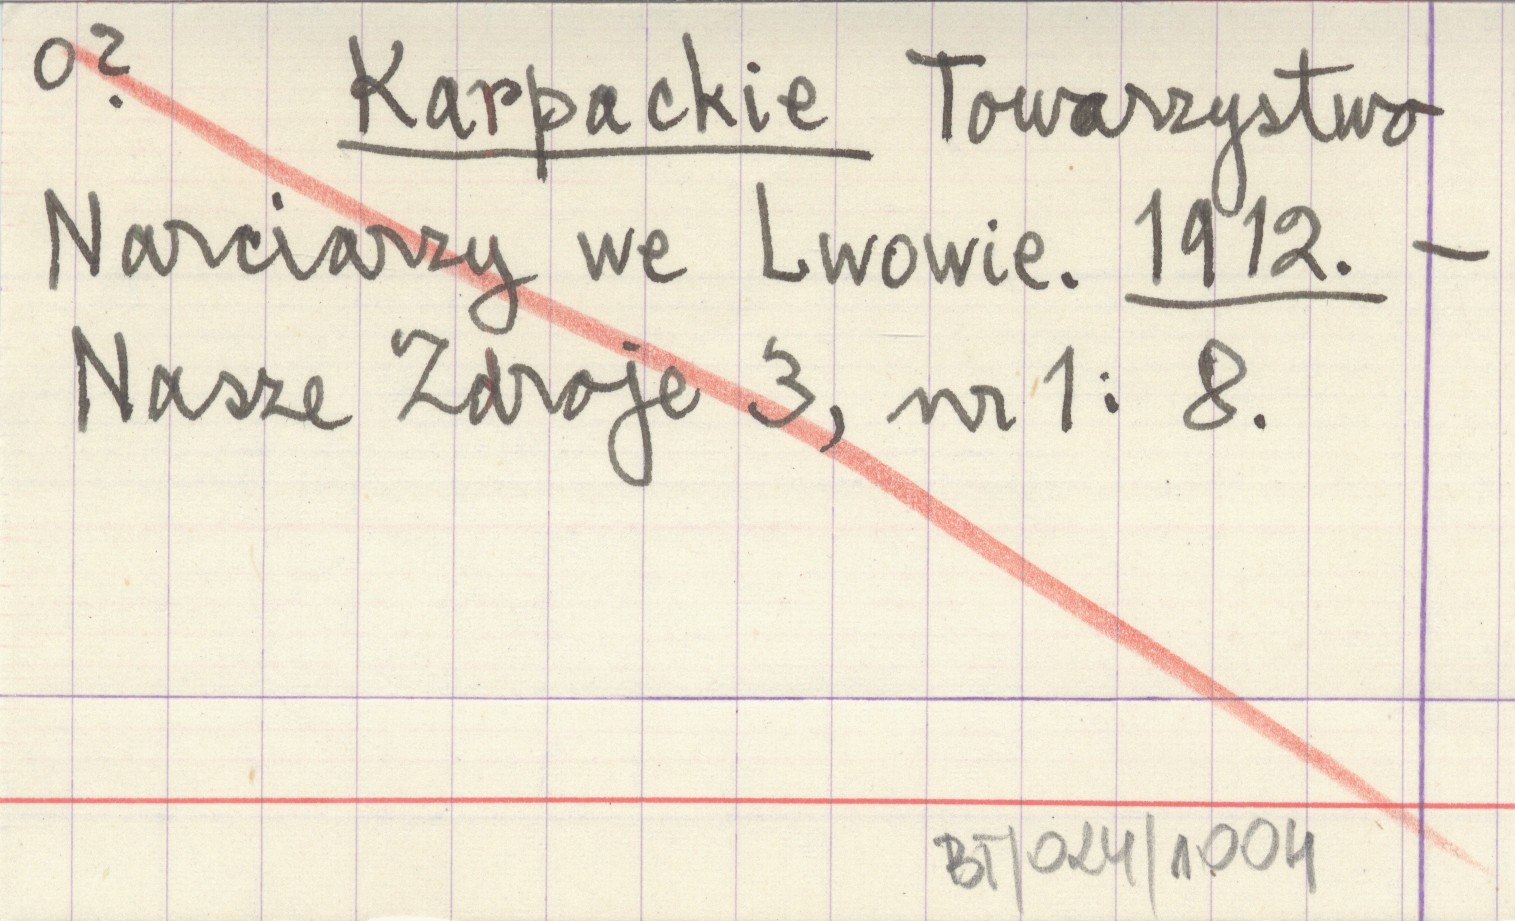 o? Karpackie Towarzystwo
Narciarzy we Lwowie. 1912. –
Nasze Zdroje 3, nr 1: 8.
BT/024/1004